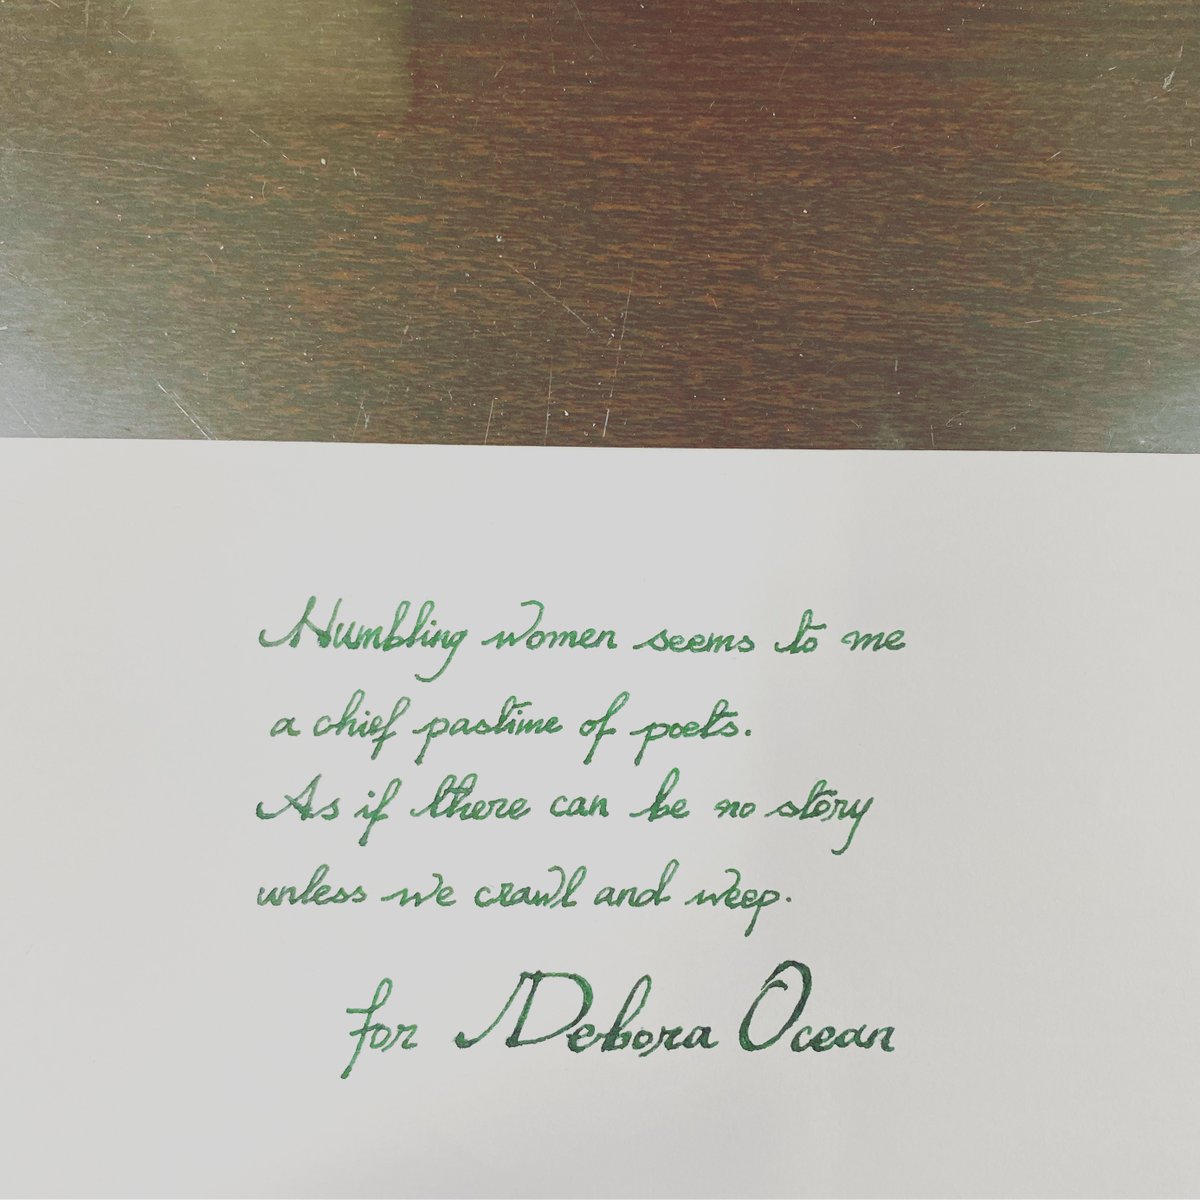 Humbling women seems to me
a chief pastime of poets.
As if there can be no story
unless we crawl and weep.
for Debora Ocean